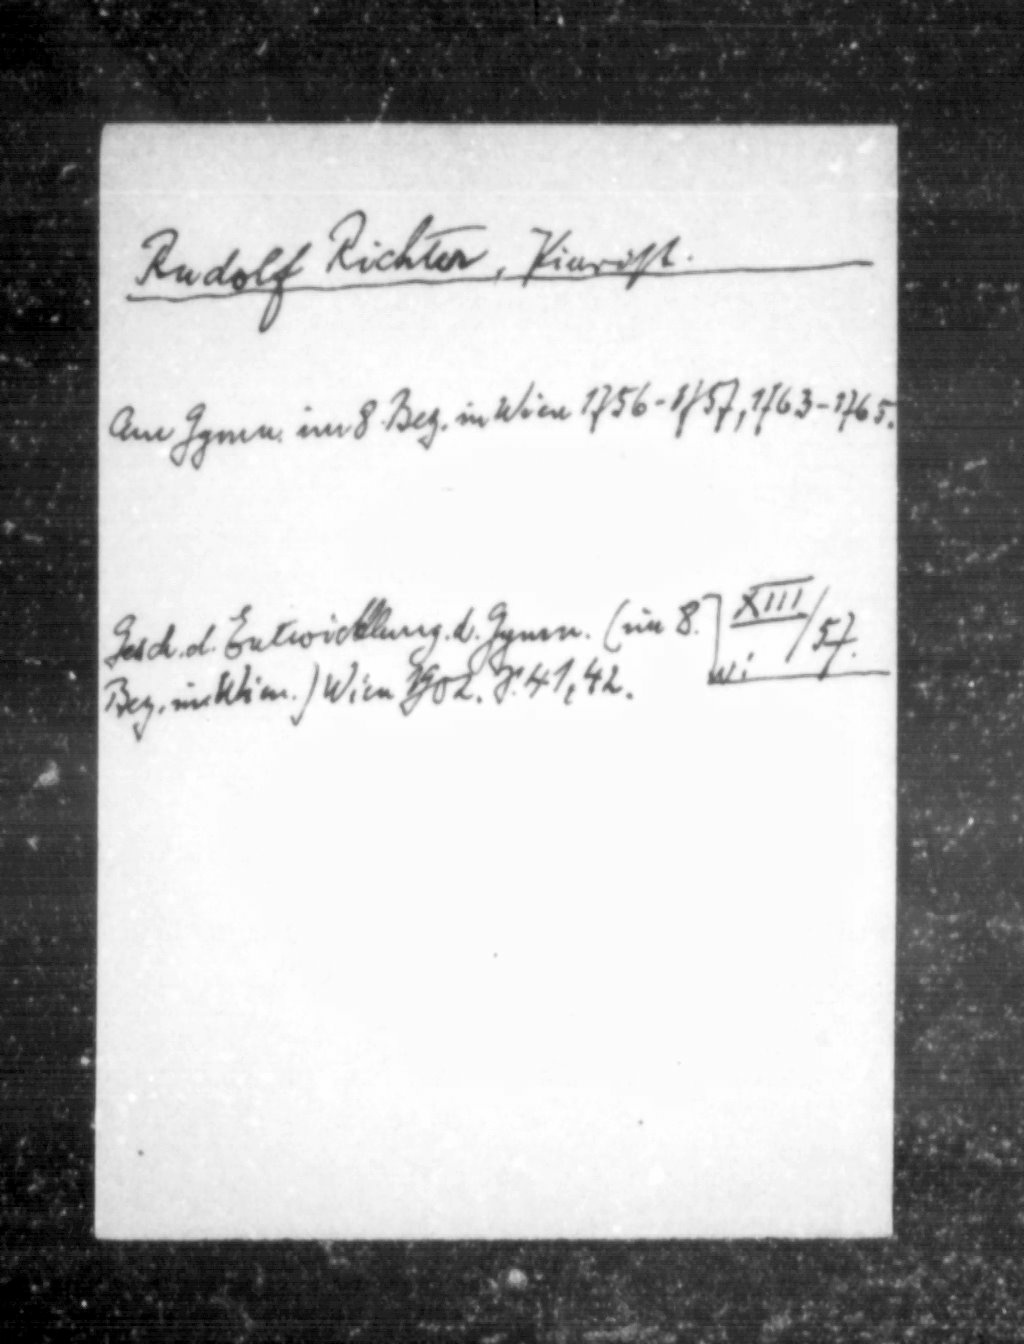 Rudolf Richter, Piarist.
Am Gymn. im 8. Bez. in Wien 1756-1757, 1763-1765.
Gesch. d. Entwicklung. d. Gymn. (im 8.
Bez. in Wien.) Wien 1902. S. 41, 42.
XIII/57.
Wi